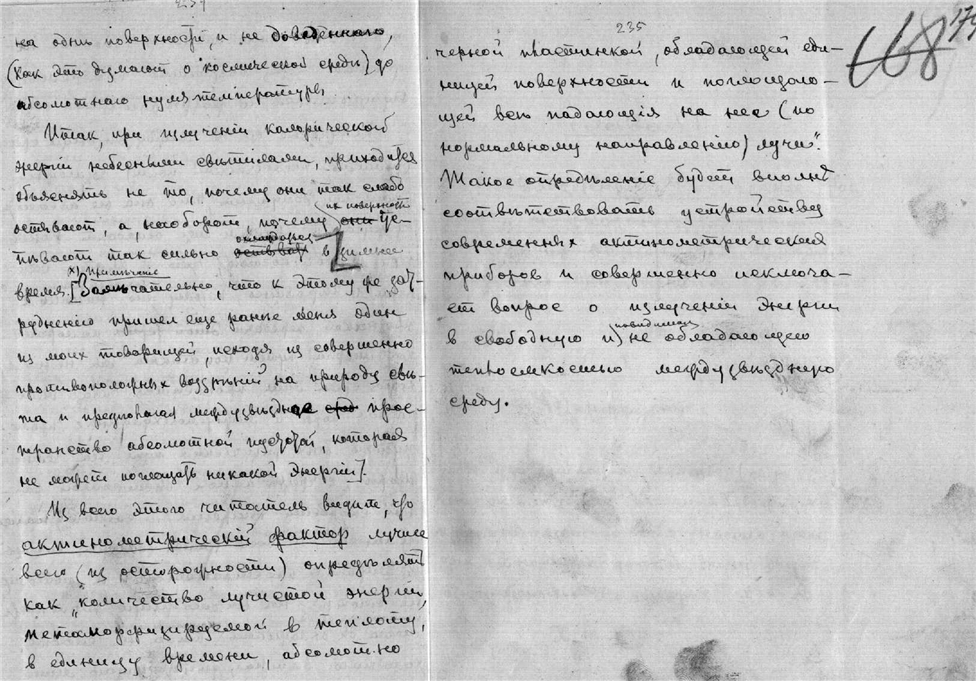 234
на однъ поверхности, и не доведеннаго,
(как это думают о космической средѣ) до
абсолютнаго нуля температуры
Итак, при излученіи калорической
энергіи небесными свѣтилами, приходится
объяснять не то, почему они так слабо
остывают, а, наоборот, почему они
на поверхности
пѣвают так сильно остывая в зимнее
охлаждаясь
время. [Замѣчательно, что к этому же зат-
х) Примѣчаніе
рудненію пришел еще ранѣе меня один
из моих товарищей, исходя из совершенно
противоположных воззрѣній на природу свѣ-
та и предполагая междузвѣздное сред прос-
транство абсолютной пустотой, которая
не может поглощать никакой энергіи].
Из всего этого читатель видит, что
актинометрическій фактор лучше
всего (из осторожности) опредѣлять
как "количество лучистой энергіи,
метаморфизируемой в теплоту,
в единицу времени, абсолютно
235
черной пластинкой, обладающей еди-
ницей поверхности и поглощаю-
щей всѣ падающія на нее (по
нормальному направленію) лучи".
Такое опредѣленіе будет вполнѣ
соотвѣтствовать устройству
современных актинометрических
приборов и совершенно исключа-
ет вопрос о излученіи энергіи
в свободную и не обладающую
повидимому
теплоемкостью междузвѣздную
среду.
168